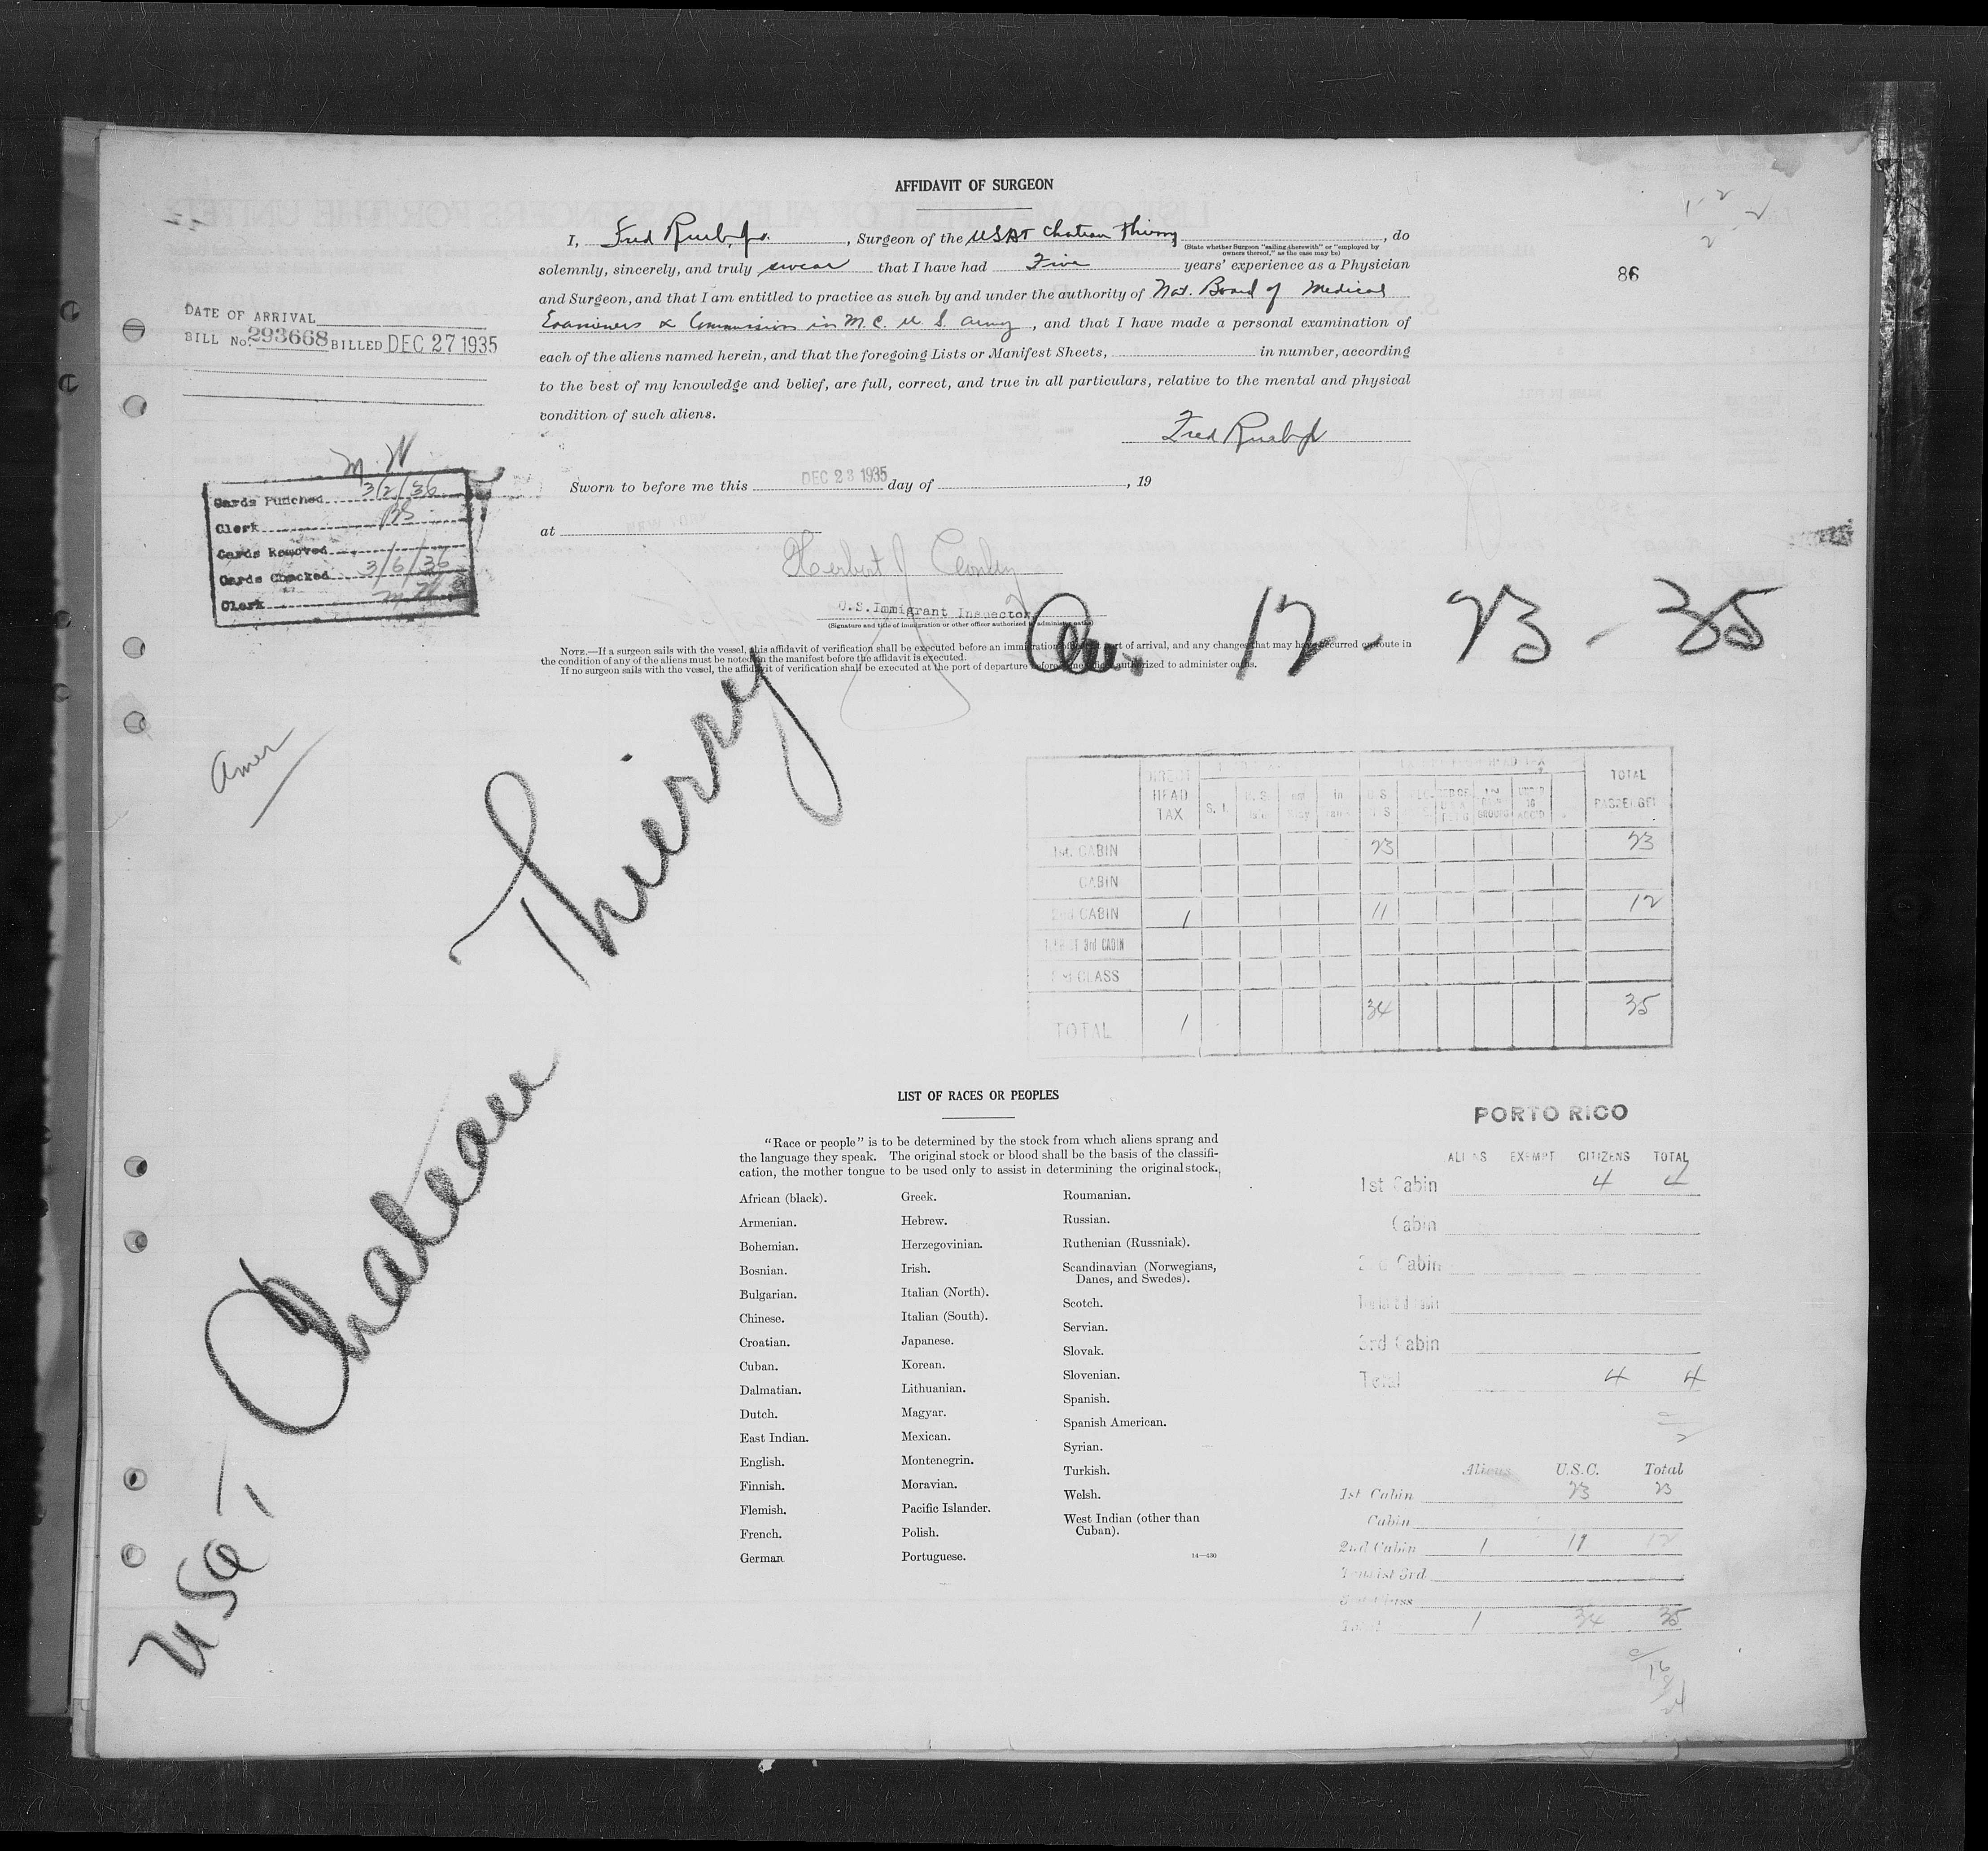 AFFIDAVIT OF SURGEON
I, Fred , Surgeon of the USAT Chateau Thierry , do
(State whether Surgeon "sailing therewith" or "employed by
owners thereof," as the case may be)
solemnly, sincerely, and truly swear that I have had Five years' experience as a Physician
and Surgeon, and that I am entitled to practice as such by and under the authority of Nat. Board of Medical
Examiners & Commission in M.C. U.S. Army , and that I have made a personal examination of
each of the aliens named herein, and that the foregoing Lists or Manifest Sheets, in number, according
to the best of my knowledge and belief, are full, correct, and true in all particulars, relative to the mental and physical
condition of such aliens.
Fred
Sworn to before me this DEC 23 1935 day of , 19
at
Herbert J
U.S. Immigrant Inspector
(Signature and title of immigration or other officer authorized to administer oaths)
NOTE.—If a surgeon sails with the vessel, this affidavit of verification shall be executed before an immigration officer at port of arrival, and any changes that may have occurred en route in
the condition of any of the aliens must be noted on the manifest before the affidavit is executed.
If no surgeon sails with the vessel, the affidavit of verification shall be executed at the port of departure before some officer authorized to administer oaths.
86
DATE OF ARRIVAL
BILL No. 293668 BILLED DEC 27 1935
M. H
Cards Punched 3/2/36
Clerk BS
Cards Removed
Cards Checked 3/6/36
Clerk
12 - 23 - 35
Amer
USAT Chateau Thierry
DIRECT HEAD TAX S. I. U.S. TOTAL PASSENGER
1st CABIN 23 23
CABIN
2nd CABIN 1 11 12
TOURIST 3rd CABIN
3rd CLASS
TOTAL 1 34 35
LIST OF RACES OR PEOPLES
"Race or people" is to be determined by the stock from which aliens sprang and
the language they speak. The original stock or blood shall be the basis of the classifi-
cation, the mother tongue to be used only to assist in determining the original stock.
African (black).
Armenian.
Bohemian.
Bosnian.
Bulgarian.
Chinese.
Croatian.
Cuban.
Dalmatian.
Dutch.
East Indian.
English.
Finnish.
Flemish.
French.
German
Greek.
Hebrew.
Herzegovinian.
Irish.
Italian (North).
Italian (South).
Japanese.
Korean.
Lithuanian.
Magyar.
Mexican.
Montenegrin.
Moravian.
Pacific Islander.
Polish.
Portuguese.
Roumanian.
Russian.
Ruthenian (Russniak).
Scandinavian (Norwegians,
Danes, and Swedes).
Scotch.
Servian.
Slovak.
Slovenian.
Spanish.
Spanish American.
Syrian.
Turkish.
Welsh.
West Indian (other than
Cuban).
14—430
PORTO RICO
ALIENS EXEMPT CITIZENS TOTAL
1st Cabin 4 4
Cabin
2nd Cabin
3rd Cabin
Total 4 4
Aliens U.S.C. Total
1st Cabin 23 23
Cabin
2nd Cabin 1 11 12
Tourist 3rd
3rd Class
Total 1 34 35